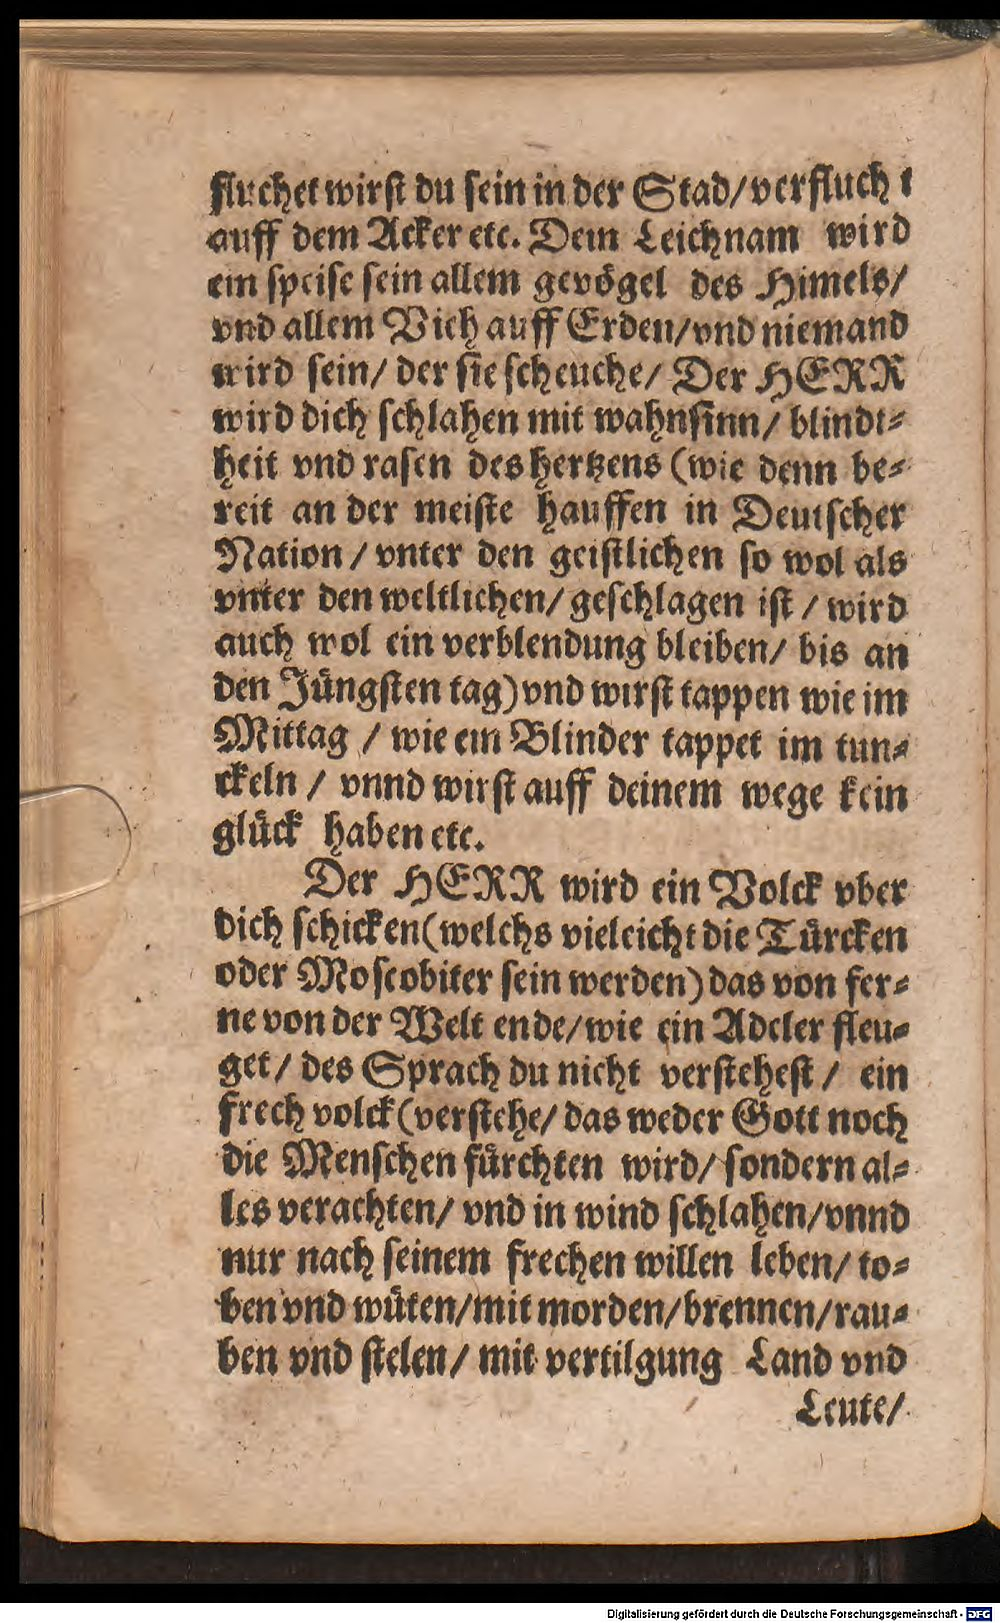 fluchet wirſt du ſein in der Stad/ verflucht
auff dem Acker etc. Dein Leichnam wird
ein ſpeiſe ſein allem gevoͤgel des Himels/
vnd allem Vieh auff Erden/ vnd niemand
wird ſein/ der ſie ſcheuche/ Der HERR
wird dich ſchlahen mit wahnſinn/ blindt⸗
heit vnd raſen des hertzens (wie denn be⸗
reit an der meiſte hauffen in Deutſcher
Nation / vnter den geiſtlichen ſo wol als
vnter den weltlichen/ geſchlagen iſt / wird
auch wol ein verblendung bleiben/ bis an
den Juͤngſten tag) vnd wirſt tappen wie im
Mittag / wie ein Blinder tappet im tun⸗
ckeln / vnnd wirſt auff deinem wege kein
gluͤck haben etc.
Der HERR wird ein Volck vber
dich ſchicken (welchs vieleicht die Tuͤrcken
oder Moſcobiter ſein werden) das von fer⸗
ne von der Welt ende/ wie ein Adeler fleu⸗
get/ des Sprach du nicht verſteheſt / ein
frech volck (verſtehe/ das weder Gott noch
die Menſchen fuͤrchten wird/ ſondern al⸗
les verachten/ vnd in wind ſchlahen/ vnnd
nur nach ſeinem frechen willen leben/ to⸗
ben vnd wuͤten/ mit morden/ brennen/ rau⸗
ben vnd ſtelen/ mit vertilgung Land vnd
Leute/
Digitalisierung gefördert durch die Deutsche Forschungsgemeinschaft - DFG